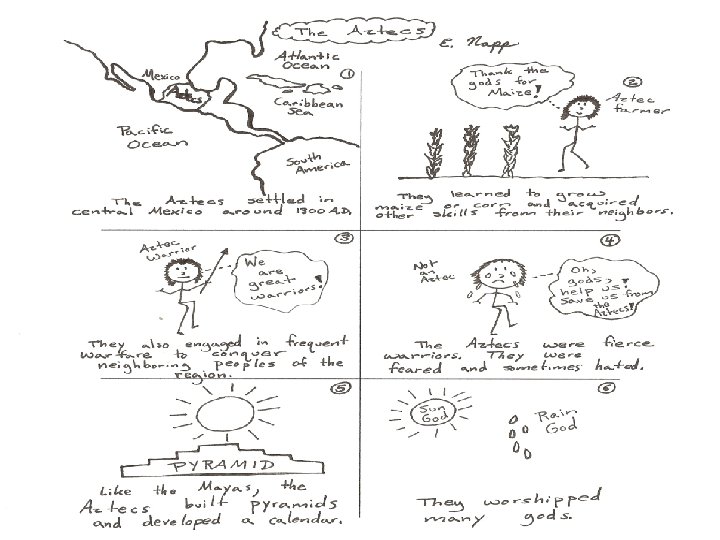 The Aztecs
E. Napp
Atlantic
Ocean
1
Mexico
Aztecs
Caribbean
Sea
Pacific
Ocean
South
America
The Aztecs settled in
central Mexico around 1300 A.D.
2
Thank the
gods for
Maize!
Aztec
farmer
They learned to grow
maize or corn and acquired
other skills from their neighbors.
3
Aztec
Warrior
We
are
great
warriors!
They also engaged in frequent
warfare to conquer
neighboring peoples of the
region.
4
Not
an
Aztec
Oh,
gods,
help us!
Save us from
the
Aztecs!
The Aztecs were fierce
warriors. They were
feared and sometimes hated.
5
PYRAMID
Like the Mayas, the
Aztecs built pyramids
and developed a calendar.
6
Sun
God
Rain
God
They worshipped
many gods.